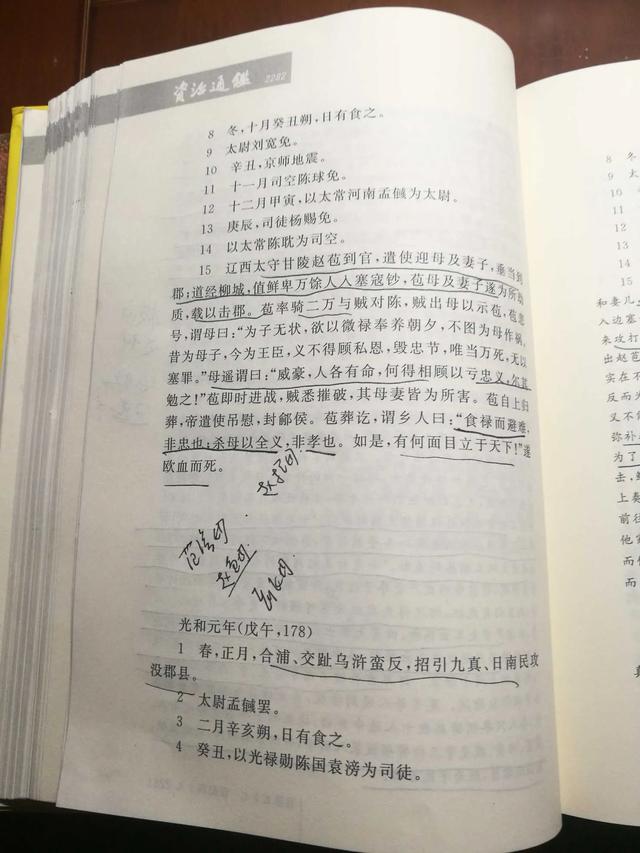 资治通鑑 2282
8 冬,十月癸丑朔,日有食之。
9 太尉刘宽免。
10 辛丑,京师地震。
11 十一月司空陈球免。
12 十二月甲寅,以太常河南孟戫为太尉。
13 庚辰,司徒杨赐免。
14 以太常陈耽为司空。
15 辽西太守甘陵赵苞到官,遣使迎母及妻子,垂当到
郡;道经柳城,值鲜卑万馀人入塞寇钞,苞母及妻子遂为所劫
质,载以击郡。苞率骑二万与贼对陈,贼出母以示苞,苞悲
号,谓母曰:“为子无状,欲以微禄奉养朝夕,不图为母作祸,
昔为母子,今为王臣,义不得顾私恩,毁忠节,唯当万死,无以
塞罪。”母遥谓曰:“威豪,人各有命,何得相顾以亏忠义,尔其
勉之!”苞即时进战,贼悉摧破,其母妻皆为所害。苞自上归
葬,帝遣使吊慰,封鄃侯。苞葬讫,谓乡人曰:“食禄而避难,
非忠也;杀母以全义,非孝也。如是,有何面目立于天下!”遂
欧血而死。
赵苞母
范滂母
赵苞母
光和元年(戊午,178)
1 春,正月,合浦、交趾乌浒蛮反,招引九真、日南民攻
没郡县。
2 太尉孟戫罢。
3 二月辛亥朔,日有食之。
4 癸丑,以光禄勋陈国袁滂为司徒。
8 冬
9 太
10
11
12
13
14
15
和妻儿
入边塞
来攻打
出赵苞
实在不
反而光
又不
弥补
为了
去,
上奏
前往
他家
而
而